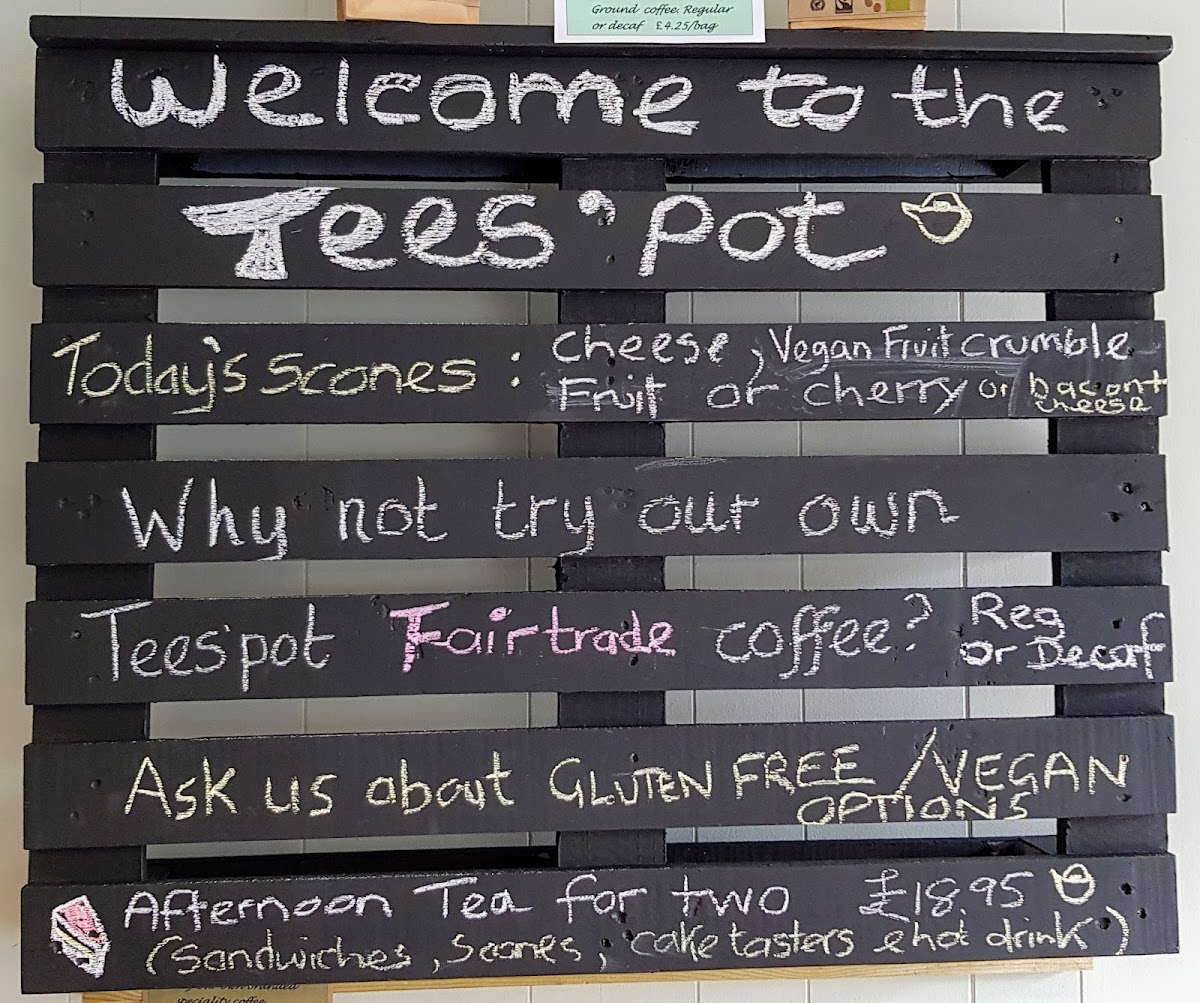 Ground coffee. Regular
or decaf £4.25/bag
Welcome to the
Tees'pot
Today's scones : cheese, Vegan Fruit crumble
Fruit or cherry or bacon +
cheese
Why not try our own
Tees'pot Fairtrade coffee? Reg
or Decaf
Ask us about GLUTEN FREE / VEGAN
OPTIONS
Afternoon Tea for two £18.95
(Sandwiches, Scones, cake tasters & hot drink)
speciality coffee